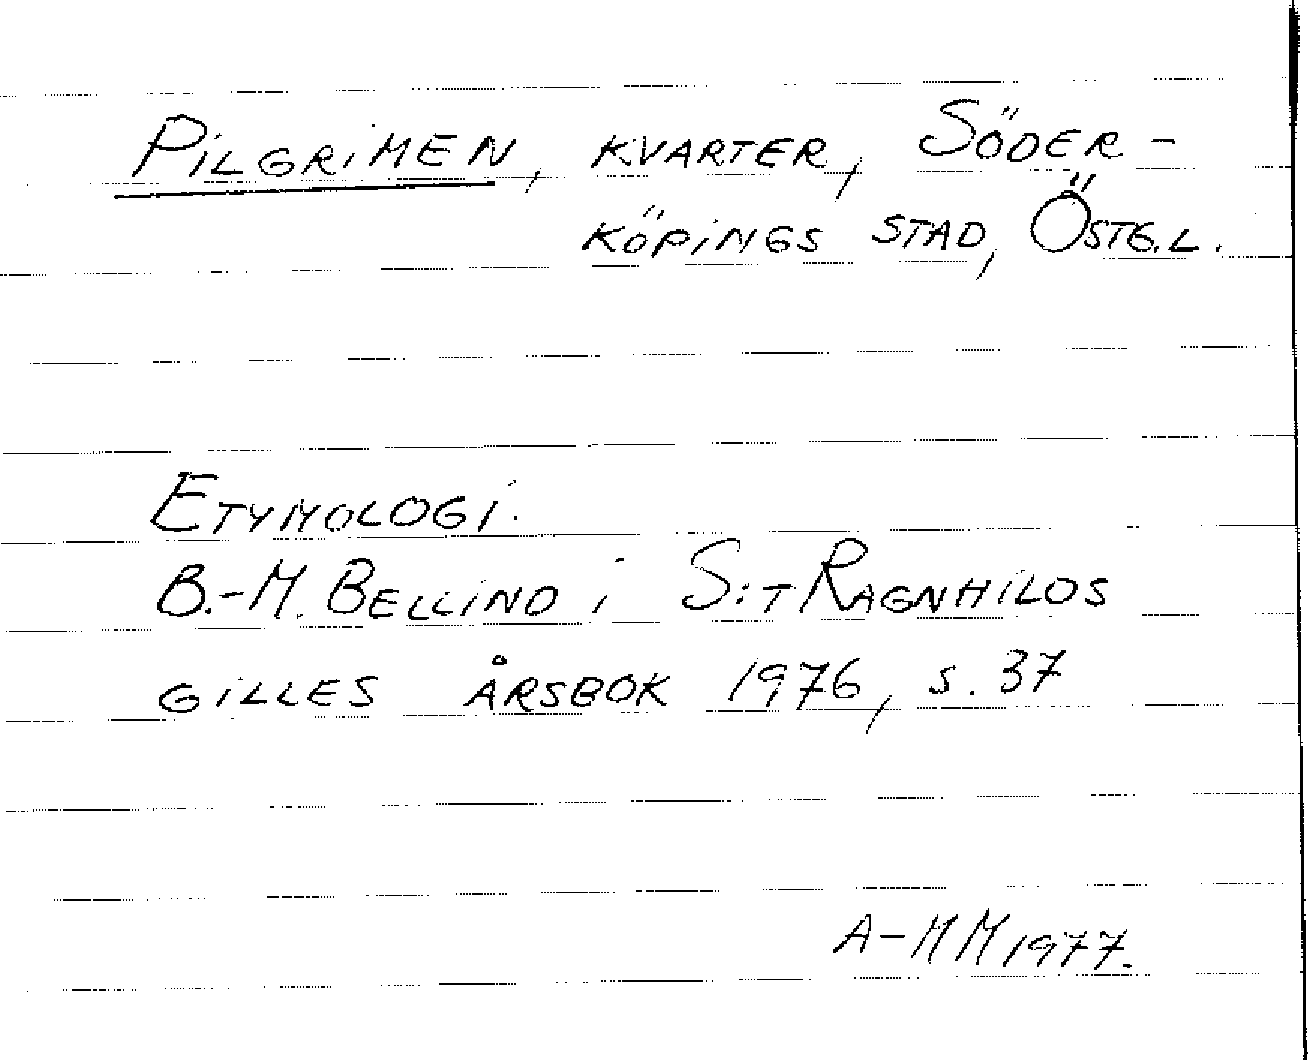 PILGRIMEN, KVARTER, SÖDER-
KÖPINGS STAD, ÖSTG.L.
ETYMOLOGI:
B.-M. BELLIND i S:T RAGNHILDS
GILLES ÅRSBOK 1976, s. 37
A-MM 1977.